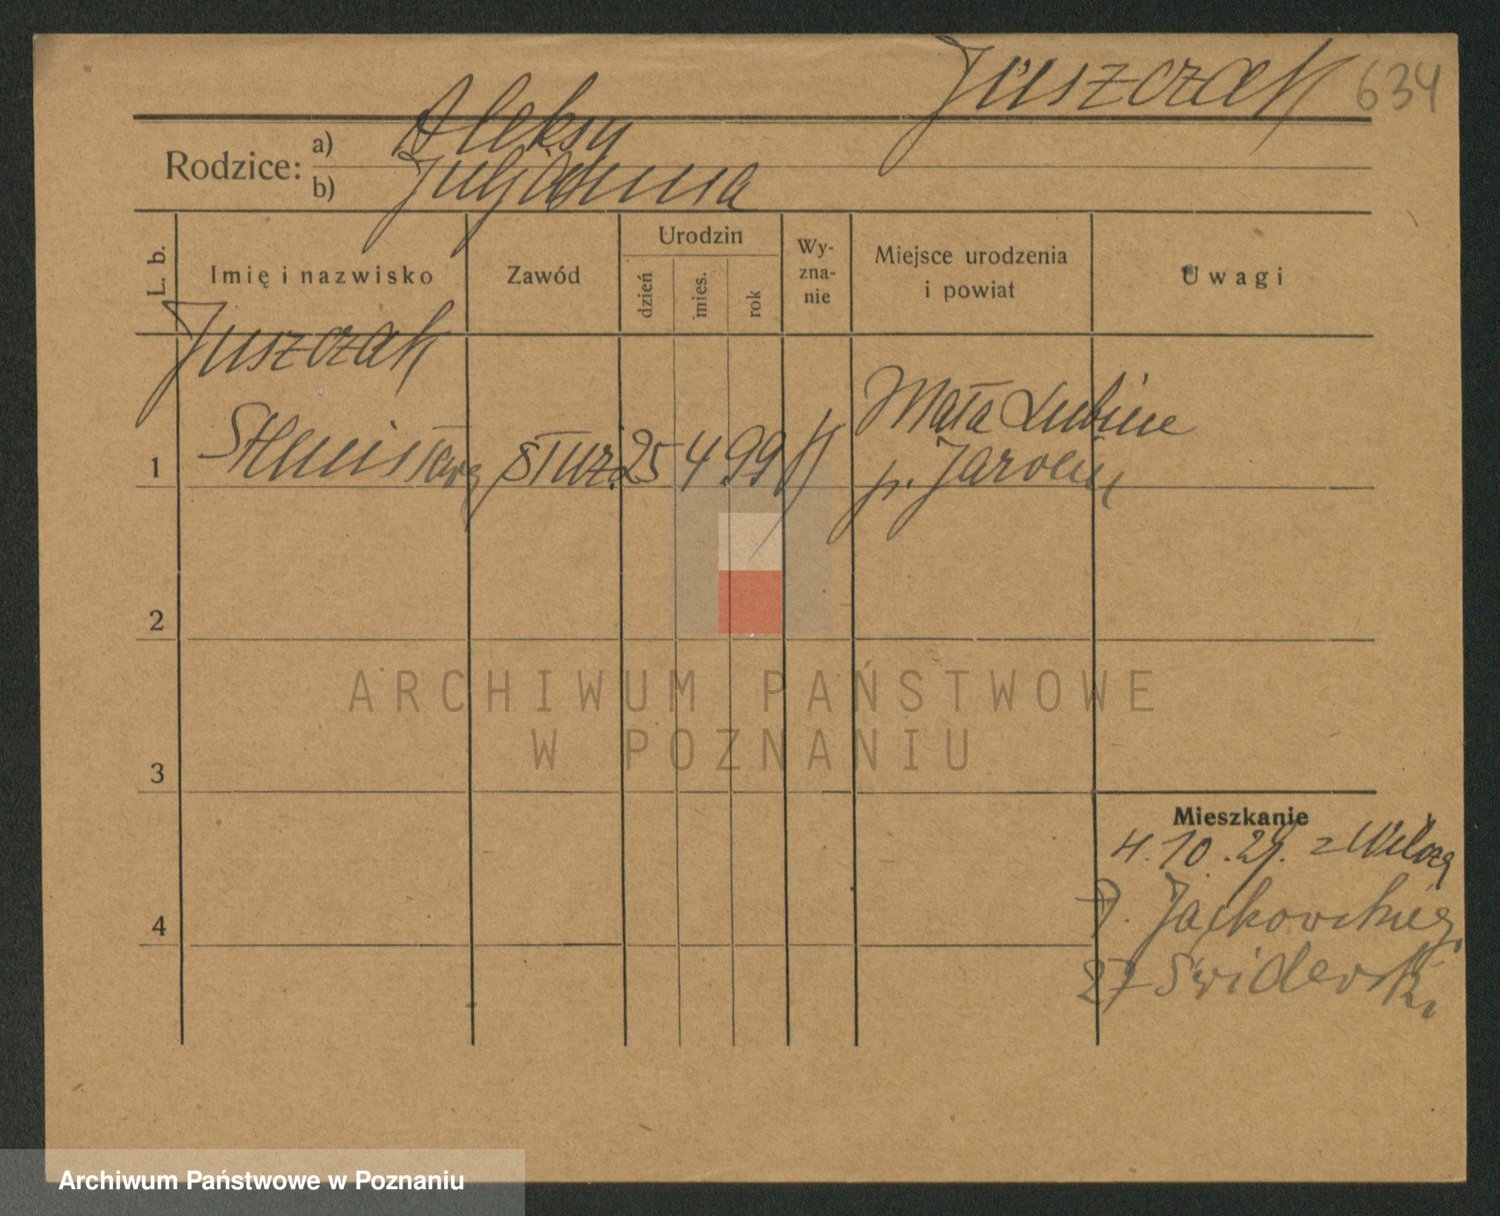 Juszczak 634
Rodzice:
a) Aleksy
b) Juljanna
L. b.
Imię i nazwisko
Zawód
Urodzin
dzień
mies.
rok
Wy-
zna-
nie
Miejsce urodzenia
i powiat
Uwagi
Juszczak
1 Stanisława służ. 25 4 99 k Mała Lubinie
p. Jarocin
2
3
4
ARCHIWUM PAŃSTWOWE
W POZNANIU
Mieszkanie
4.10.29. z
P. Jackowskieg
27 Swiderski
Archiwum Państwowe w Poznaniu